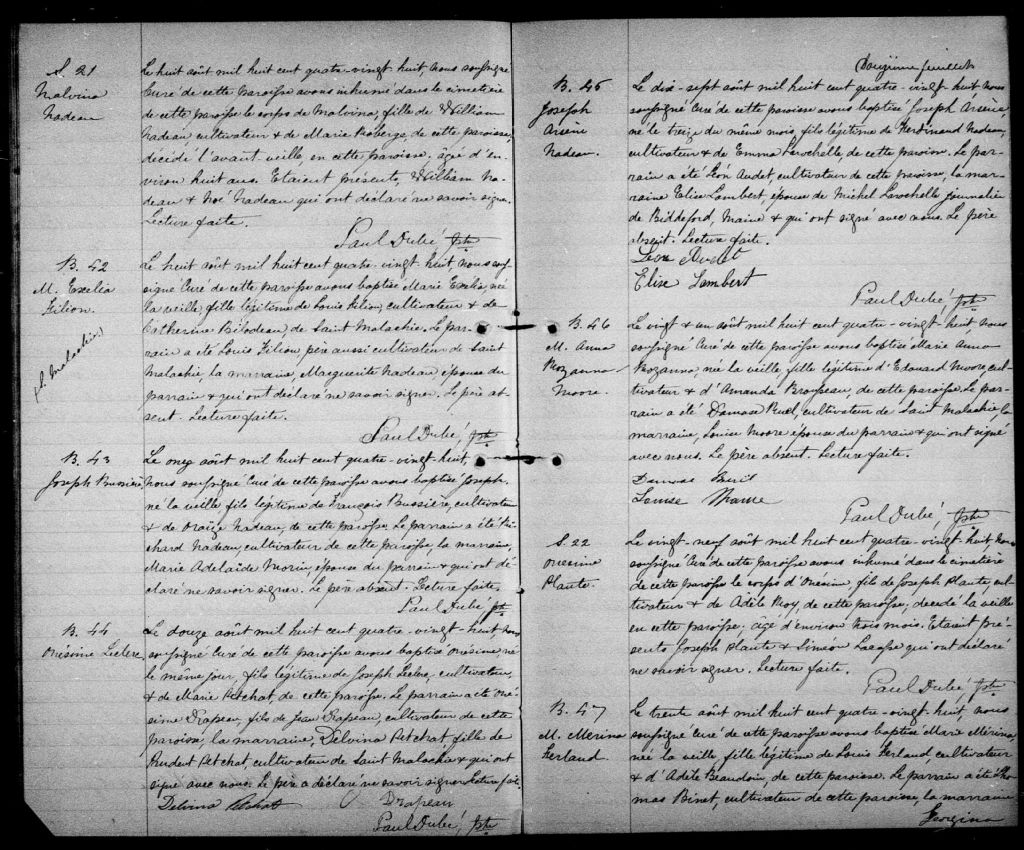 S. 21
Malvina
Nadeau
Le huit août mil huit cent quatre-vingt huit, nous soussigné
Curé de cette paroisse avons inhumé dans le cimetière
de cette paroisse le corps de Malvina, fille de William
Nadeau, cultivateur & de Marie Roberge, de cette paroisse,
décédé l'avant-veille, en cette paroisse, âgée d'en-
viron huit ans. Etaient présents, William Na-
deau & Noé Nadeau qui ont déclaré ne savoir signer.
Lecture faite.
Paul Dubé, Ptre
B. 42
M. Exelia
Filion.
(St. Malachie)
Le huit août mil huit cent quatre-vingt huit, nous sous-
signé Curé de cette paroisse avons baptisé Marie Exelia, né
la veille, fille légitime de Louis Filion, cultivateur & de
Catherine Bilodeau de Saint Malachie. Le par-
rain a été Louis Filion père aussi cultivateur de Saint
Malachie, la marraine, Marguerite Nadeau épouse du
parrain & qui ont déclaré ne savoir signer. Le père ab-
sent. Lecture faite.
Paul Dubé, Ptre
B. 43
Joseph Bussière
Le onze août mil huit cent quatre-vingt-huit,
nous soussigné Curé de cette paroisse avons baptisé Joseph,
né la veille, fils légitime de François Bussière, cultivateur
& de Oraize Nadeau, de cette paroisse. Le parrain a été Ri-
chard Nadeau, cultivateur de cette paroisse, la marraine,
Marie Adelaïde Morin, épouse du parrain & qui ont dé-
claré ne savoir signer. Le père absent. Lecture faite.
Paul Dubé, Ptre
B. 44
Onésime Leclerc
Le douze août mil huit cent quatre-vingt-huit nous
soussigné Curé de cette paroisse avons baptisé Onésime, né
le même jour, fils légitime de Joseph Leclerc, cultivateur,
& de Marie Petchat, de cette paroisse. Le parrain a été Oné-
sime Drapeau, fils de Jean Drapeau, cultivateur de cette
paroisse, la marraine, Delvina Petchat, fille de
Prudent Petchat, cultivateur de Saint Malachie & qui ont
signé avec nous. Le père a déclaré ne savoir signer. Lecture faite
Delvina Petchatt
Drapeau
Paul Dubé, Ptre
Douzième feuillet
B. 45
Joseph
Arsène
Nadeau.
Le dix-sept août mil huit cent quatre-vingt-huit nous
soussigné Curé de cette paroisse avons baptisé Joseph Arsène,
né le treize du même mois, fils légitime de Ferdinand Nadeau,
cultivateur & de Emma Larochelle, de cette paroisse. Le par-
rain a été Léon Audet, cultivateur de cette paroisse, la mar-
raine Elise Lambert, épouse de Michel Larochelle journalier
de Biddeford, Maine & qui ont signé avec nous. Le père
absent. Lecture faite.
Léon Audet
Elise Lambert
Paul Dubé, Ptre
B. 46
M. Anna
Rozanna
Moore.
Le vingt & un août mil huit cent quatre-vingt-huit, nous
soussigné Curé de cette paroisse avons baptisé Marie Anna
Rozanna, née la veille, fille légitime d'Edouard Moore, cul-
tivateur & d'Amanda Brousseau, de cette paroisse. Le par-
rain a été Damase Ruel, cultivateur de Saint Malachie, la
marraine, Louise Moore épouse du parrain & qui ont signé
avec nous. Le père absent. Lecture faite.
Damase Ruel
Louise
Paul Dubé, Ptre
S. 22
Onésime
Plante.
Le vingt-neuf août mil huit cent quatre-vingt-huit nous
soussigné Curé de cette paroisse avons inhumé dans le cimetière
de cette paroisse le corps d'Onésime, fils de Joseph Plante, cul-
tivateur & de Adèle Roy, de cette paroisse; décédé la veille
en cette paroisse; âgé d'environ trois mois. Etaient pré-
sents Joseph Plante & Siméon Lacasse qui ont déclaré
ne savoir signer. Lecture faite.
Paul Dubé, Ptre
B. 47
M. Merina
Ferland.
Le trente août mil huit cent quatre-vingt-huit, nous
soussigné Curé de cette paroisse avons baptisé Marie Merina,
née la veille, fille légitime de Louis Ferland, cultivateur
& d'Adèle Beaudoin, de cette paroisse. Le parrain a été Tho-
mas Binet, cultivateur de cette paroisse, la marraine
Georgina